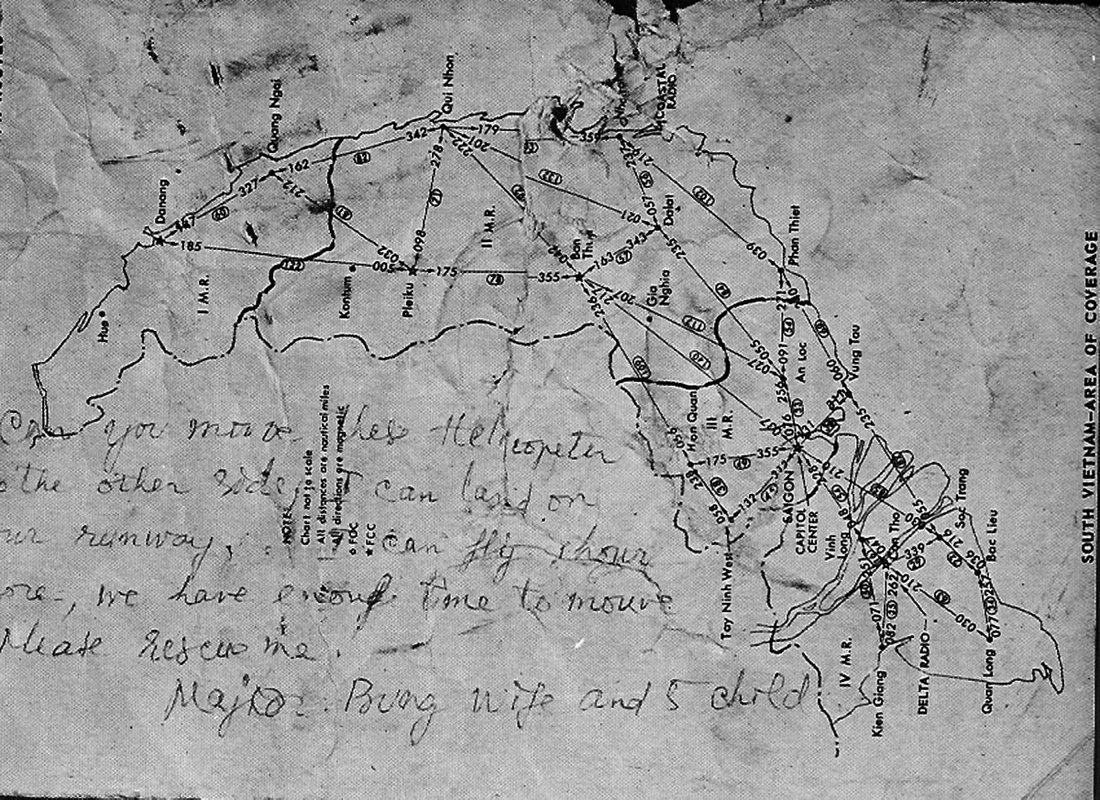 SOUTH VIETNAM—AREA OF COVERAGE
Danang
Quang Ngai
Qui Nhon
COASTAL
RADIO
Hue
I M.R.
Kontum
Pleiku
II M.R.
Ban
Dalat
Gia
Nghia
Phan Thiet
An Loc
Vung Tau
Hon Quan
III
M.R.
SAIGON
CAPITOL
CENTER
Tay Ninh West
Vinh
Long
Can Tho
Soc Trang
Bac Lieu
IV M.R.
Kien Giang
DELTA RADIO
Quan Long
185
327
162
342
179
278
098
175
355
163
343
021
057
235
039
175
355
091
259
055
027
132
235
071
082
262
210
030
077
257
036
216
NOTES
Chart not to scale
All distances are nautical miles
All directions are magnetic
FDC
★ FCC
Can you mouve thes Helicopter
the other side, I can land on
runway, I can fly 1 hour
we have enouf time to mouve
Please rescue me.
Major Bung wife and 5 child